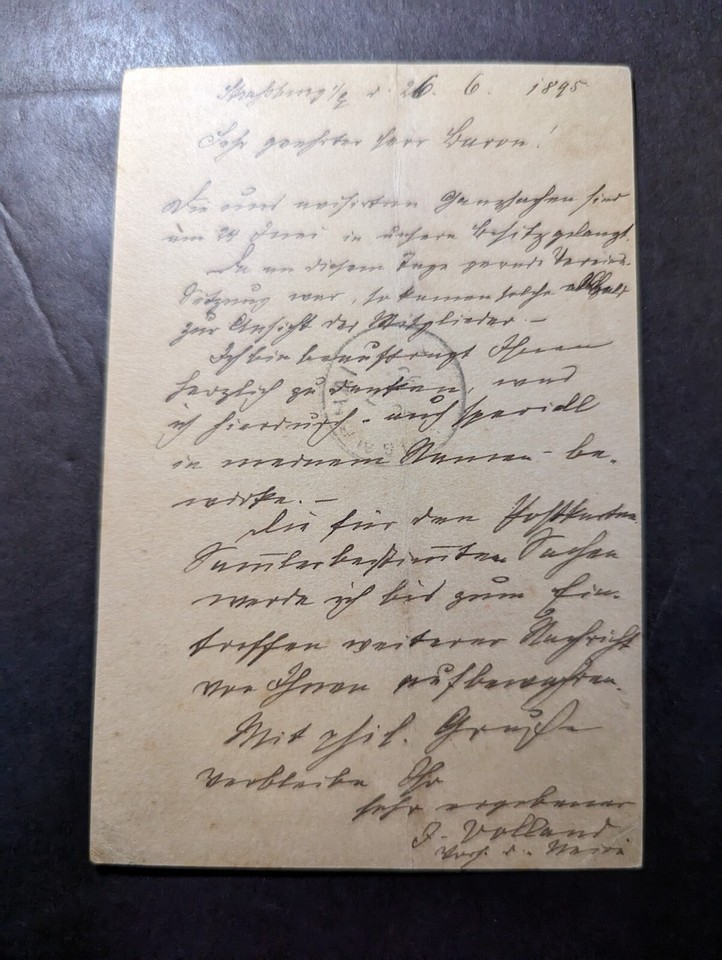 Straßburg i/E d. 26. 6. 1895
Sehr geehrter Herr Baron!
Die uns avisirten Ganzsachen sind
am 24 Juni in unsern Besitz gelangt.
Da an diesem Tage gerade Vereins-
Sitzung war, so kamen solche alsbald
zur Ansicht der Mitglieder. –
Ich bin beauftragt Ihnen
herzlich zu danken, was
ich hierdurch – auch speciell
in meinem Namen – be-
wirke. –
Die für den Postkarten
Sammler bestimten Sachen
werde ich bis zum Ein-
treffen weiterer Nachricht
von Ihnen aufbewahren.
Mit phil. Gruße
verbleibe Ihr
sehr ergebener
J. Volland
Vors. d.